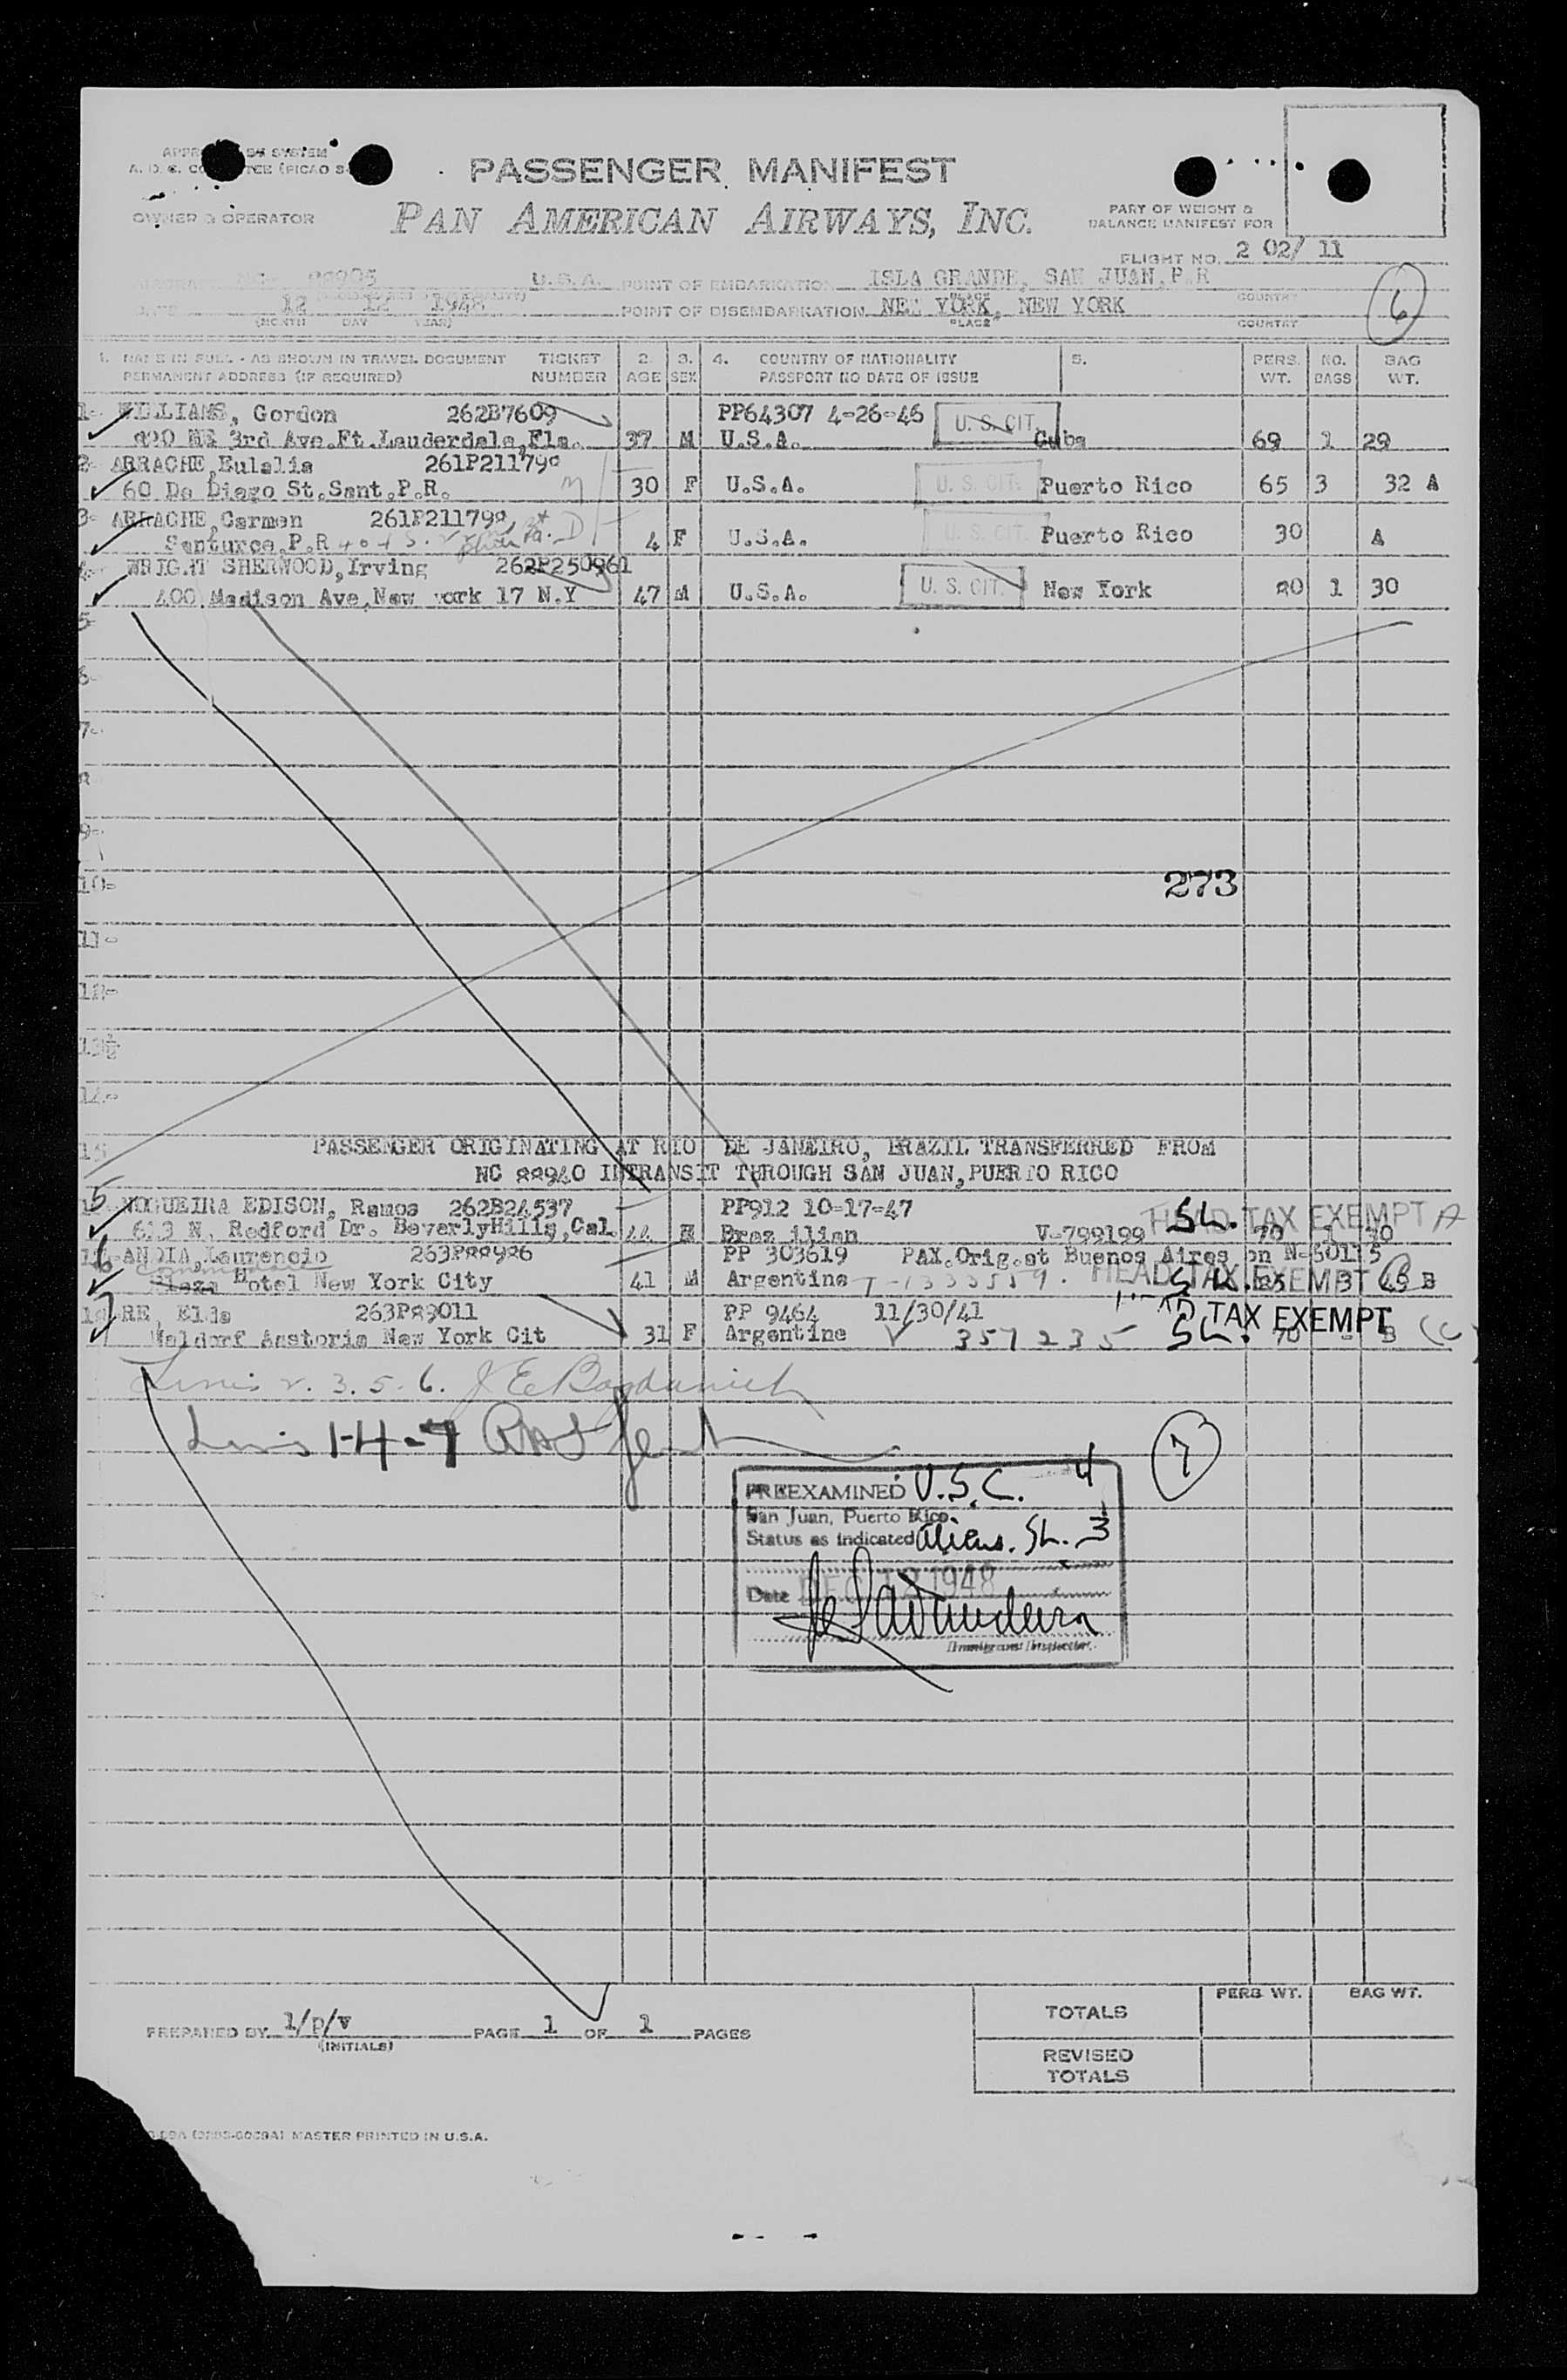 PASSENGER MANIFEST
OWNER & OPERATOR
PAN AMERICAN AIRWAYS, INC.
PART OF WEIGHT &
BALANCE MANIFEST FOR
FLIGHT NO. 2 02/ 11
U.S.A. POINT OF EMBARKATION ISLA GRANDE, SAN JUAN, P.R
12 12 1948 POINT OF DISEMBARKATION NEW YORK, NEW YORK
(MONTH DAY YEAR) PLACE COUNTRY
6
1. NAME IN FULL - AS SHOWN IN TRAVEL DOCUMENT TICKET 2. 3. 4. COUNTRY OF NATIONALITY 5. PERS. NO. BAG
PERMANENT ADDRESS (IF REQUIRED) NUMBER AGE SEX PASSPORT NO DATE OF ISSUE WT. BAGS WT.
1- WILLIAMS, Gordon 262B7609 PP64307 4-26-46 U. S. CIT.
NE 3rd Ave.Ft.Lauderdale,Fla. 37 M U.S.A. Cuba 69 1 29
2- ARRACHE,Eulalia 261P211798
60 De Diego St.Sant.P.R. 30 F U.S.A. U. S. CIT. Puerto Rico 65 3 32 A
3- ARRACHE,Carmen 261P211799
Santurce,P.R 4 F U.S.A. U. S. CIT. Puerto Rico 30 A
4- WRIGHT SHERWOOD,Irving 262P250961
400 Madison Ave,New york 17 N.Y 47 M U.S.A. U. S. CIT. New York 80 1 30
5-
6-
7-
8
9-
10- 273
11-
12-
13
14-
15
PASSENGER ORIGINATING AT RIO DE JANEIRO, BRAZIL TRANSFERRED FROM
NC 88940 INTRANSIT THROUGH SAN JUAN,PUERTO RICO
5 NOGUEIRA EDISON, Ramos 262B24537 PP912 10-17-47 SL. HEAD TAX EXEMPT A
613 N. Redford Dr. BeverlyHills,Cal. 44 M Braz ilian V-799199 70 30
6 ANDIA,Laurencio 263P88926 PP 303619 PAX.Orig.at Buenos Aires on N-50115
Plaza Hotel New York City 41 M Argentine T-1333559. HEAD TAX EXEMPT 3 45 B
7 RE, Elda 263P89011 PP 9464 11/30/41 TAX EXEMPT
Waldorf Aastoria New York Cit 31 F Argentine V 357235 SL. 70 - B (C)
Lines 2. 3. 5. 6. J E Bogdanich
Lines 1-4-7
7
PREEXAMINED U.S.C. 4
San Juan, Puerto Rico
Status as indicated aliens. SL. 3
Date DEC 12 1948
Immigrant Inspector.
PREPARED BY 1/p/v PAGE 1 OF 1 PAGES
(INITIALS)
PERS. WT. BAG WT.
TOTALS
REVISED
TOTALS
MASTER PRINTED IN U.S.A.